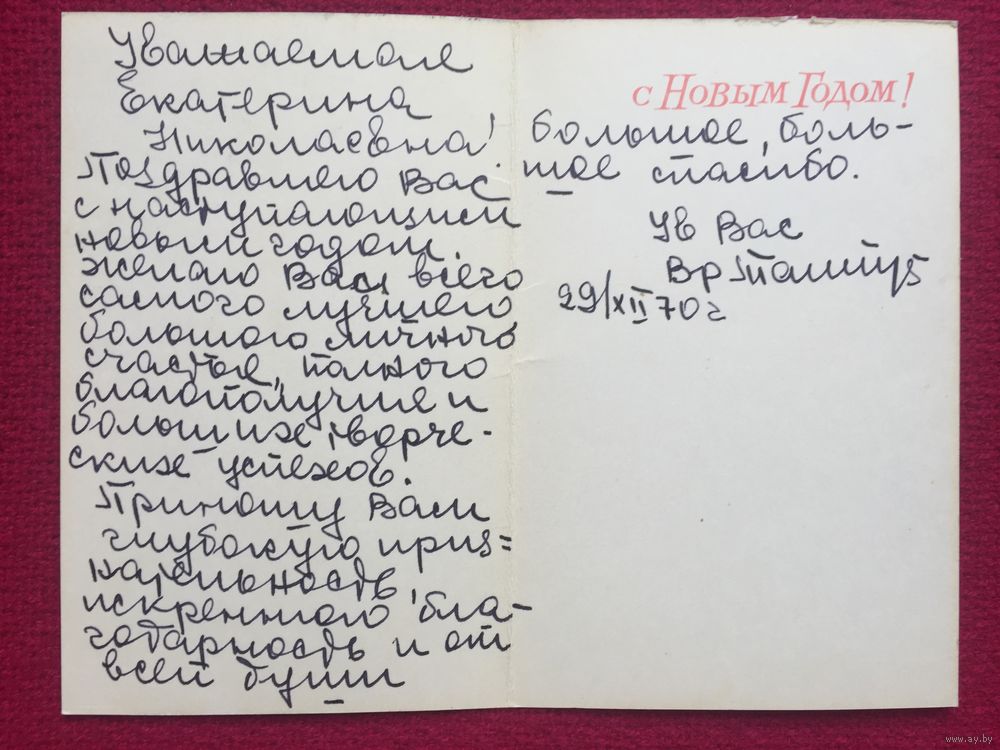 Уважаемая
Екатерина
Николаевна!
Поздравляю Вас
с наступающим
новым годом.
желаю Вам всего
самого лучшего
большого личного
счастья, полного
благополучия и
больших творче-
ских успехов.
Приношу Вам
глубокую приз=
нательность,
искреннюю бла-
годарность и от
всей души
с Новым Годом!
большое, боль-
шое спасибо.
Ув Вас
Вр
29/XII 70 г
www.ay.by